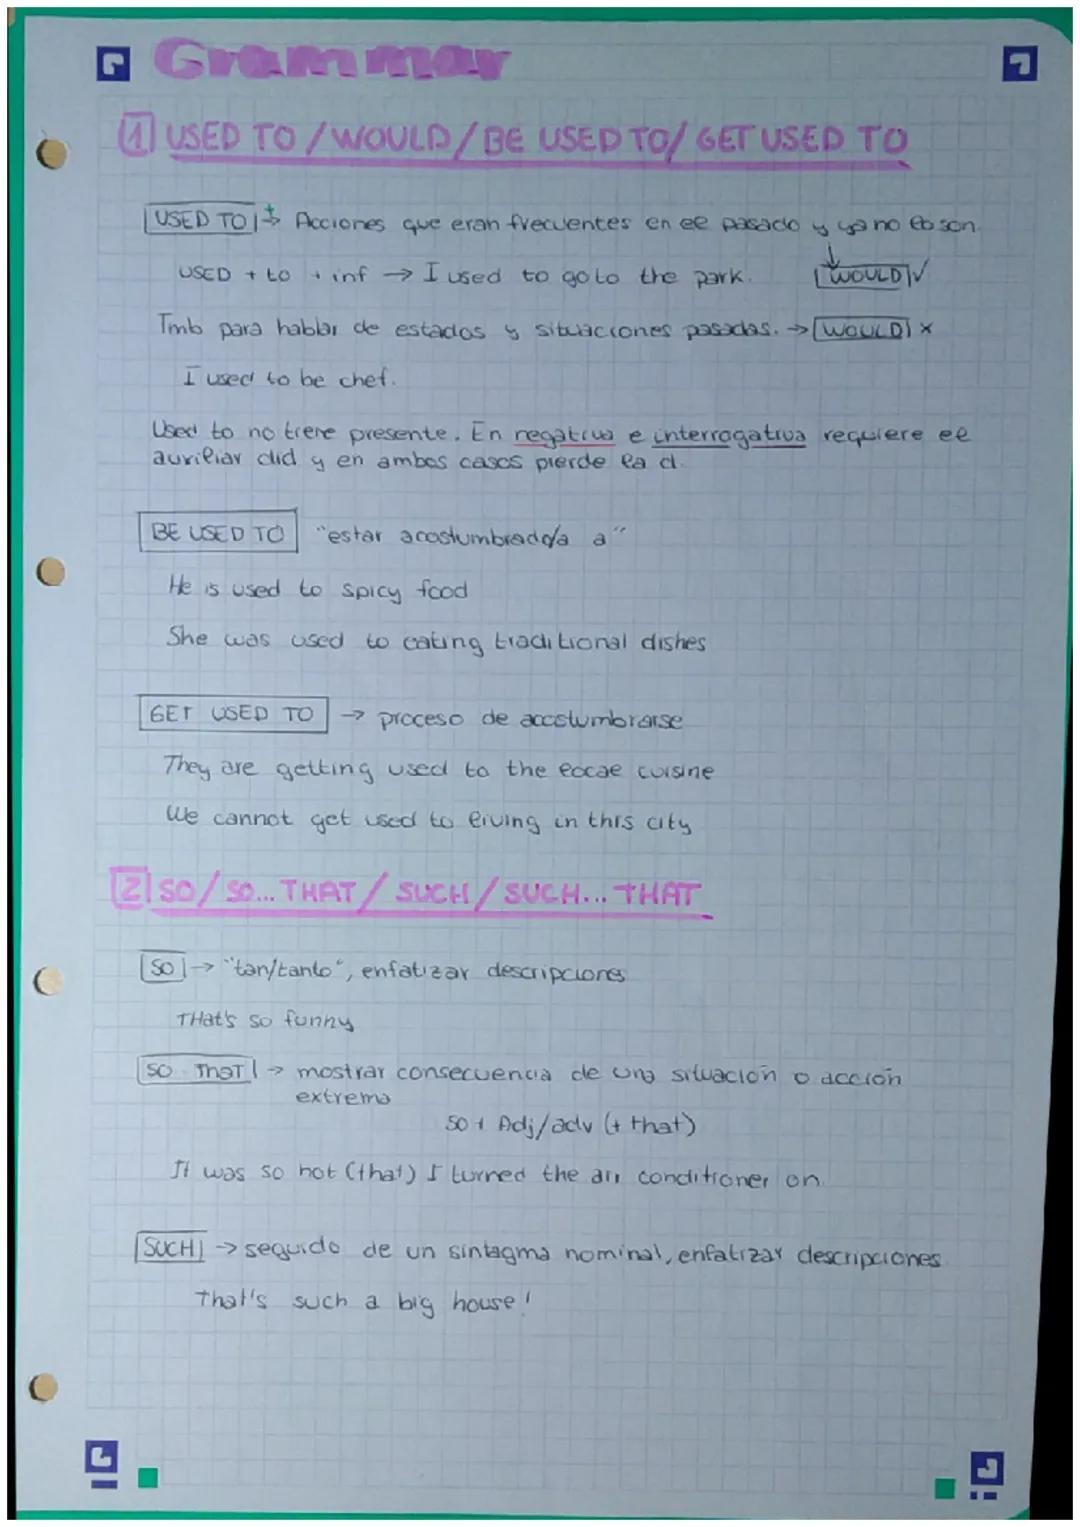 Grammar
1 USED TO / WOULD / BE USED TO / GET USED TO
USED TO + → Acciones que eran frecuentes en el pasado y ya no lo son.
USED + to + inf → I used to go to the park. WOULD ✓
Tmb para hablar de estados y situaciones pasadas. → WOULD x
I used to be chef.
Used to no tiene presente. En negativa e interrogativa requiere el
auxiliar did y en ambos casos pierde la d.
BE USED TO "estar acostumbrado/a a"
He is used to spicy food
She was used to eating traditional dishes
GET USED TO → proceso de acostumbrarse
They are getting used to the local cuisine
We cannot get used to living in this city
2 SO / SO... THAT / SUCH / SUCH... THAT
SO → "tan/tanto", enfatizar descripciones
THat's so funny
SO THAT → mostrar consecuencia de una situación o acción
extrema
SO + Adj/adv (+ that)
It was so hot (that) I turned the air conditioner on.
SUCH → seguido de un sintagma nominal, enfatizar descripciones.
That's such a big house!